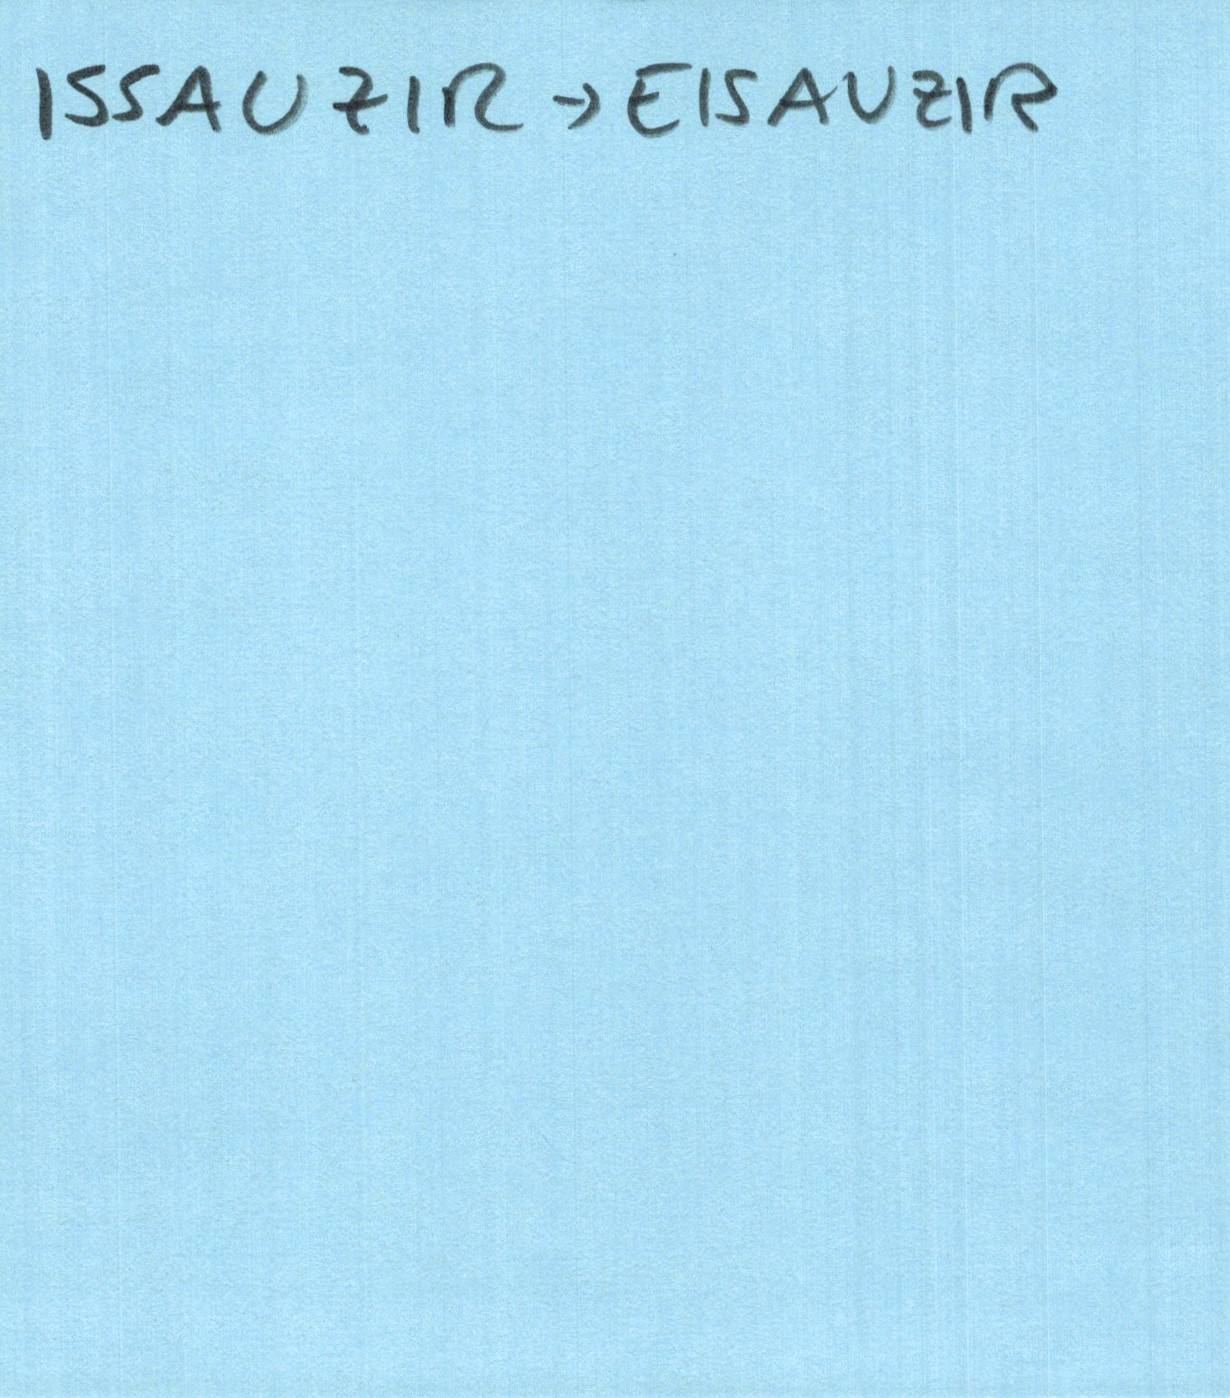 ISSAUZIR → EISAUZIR